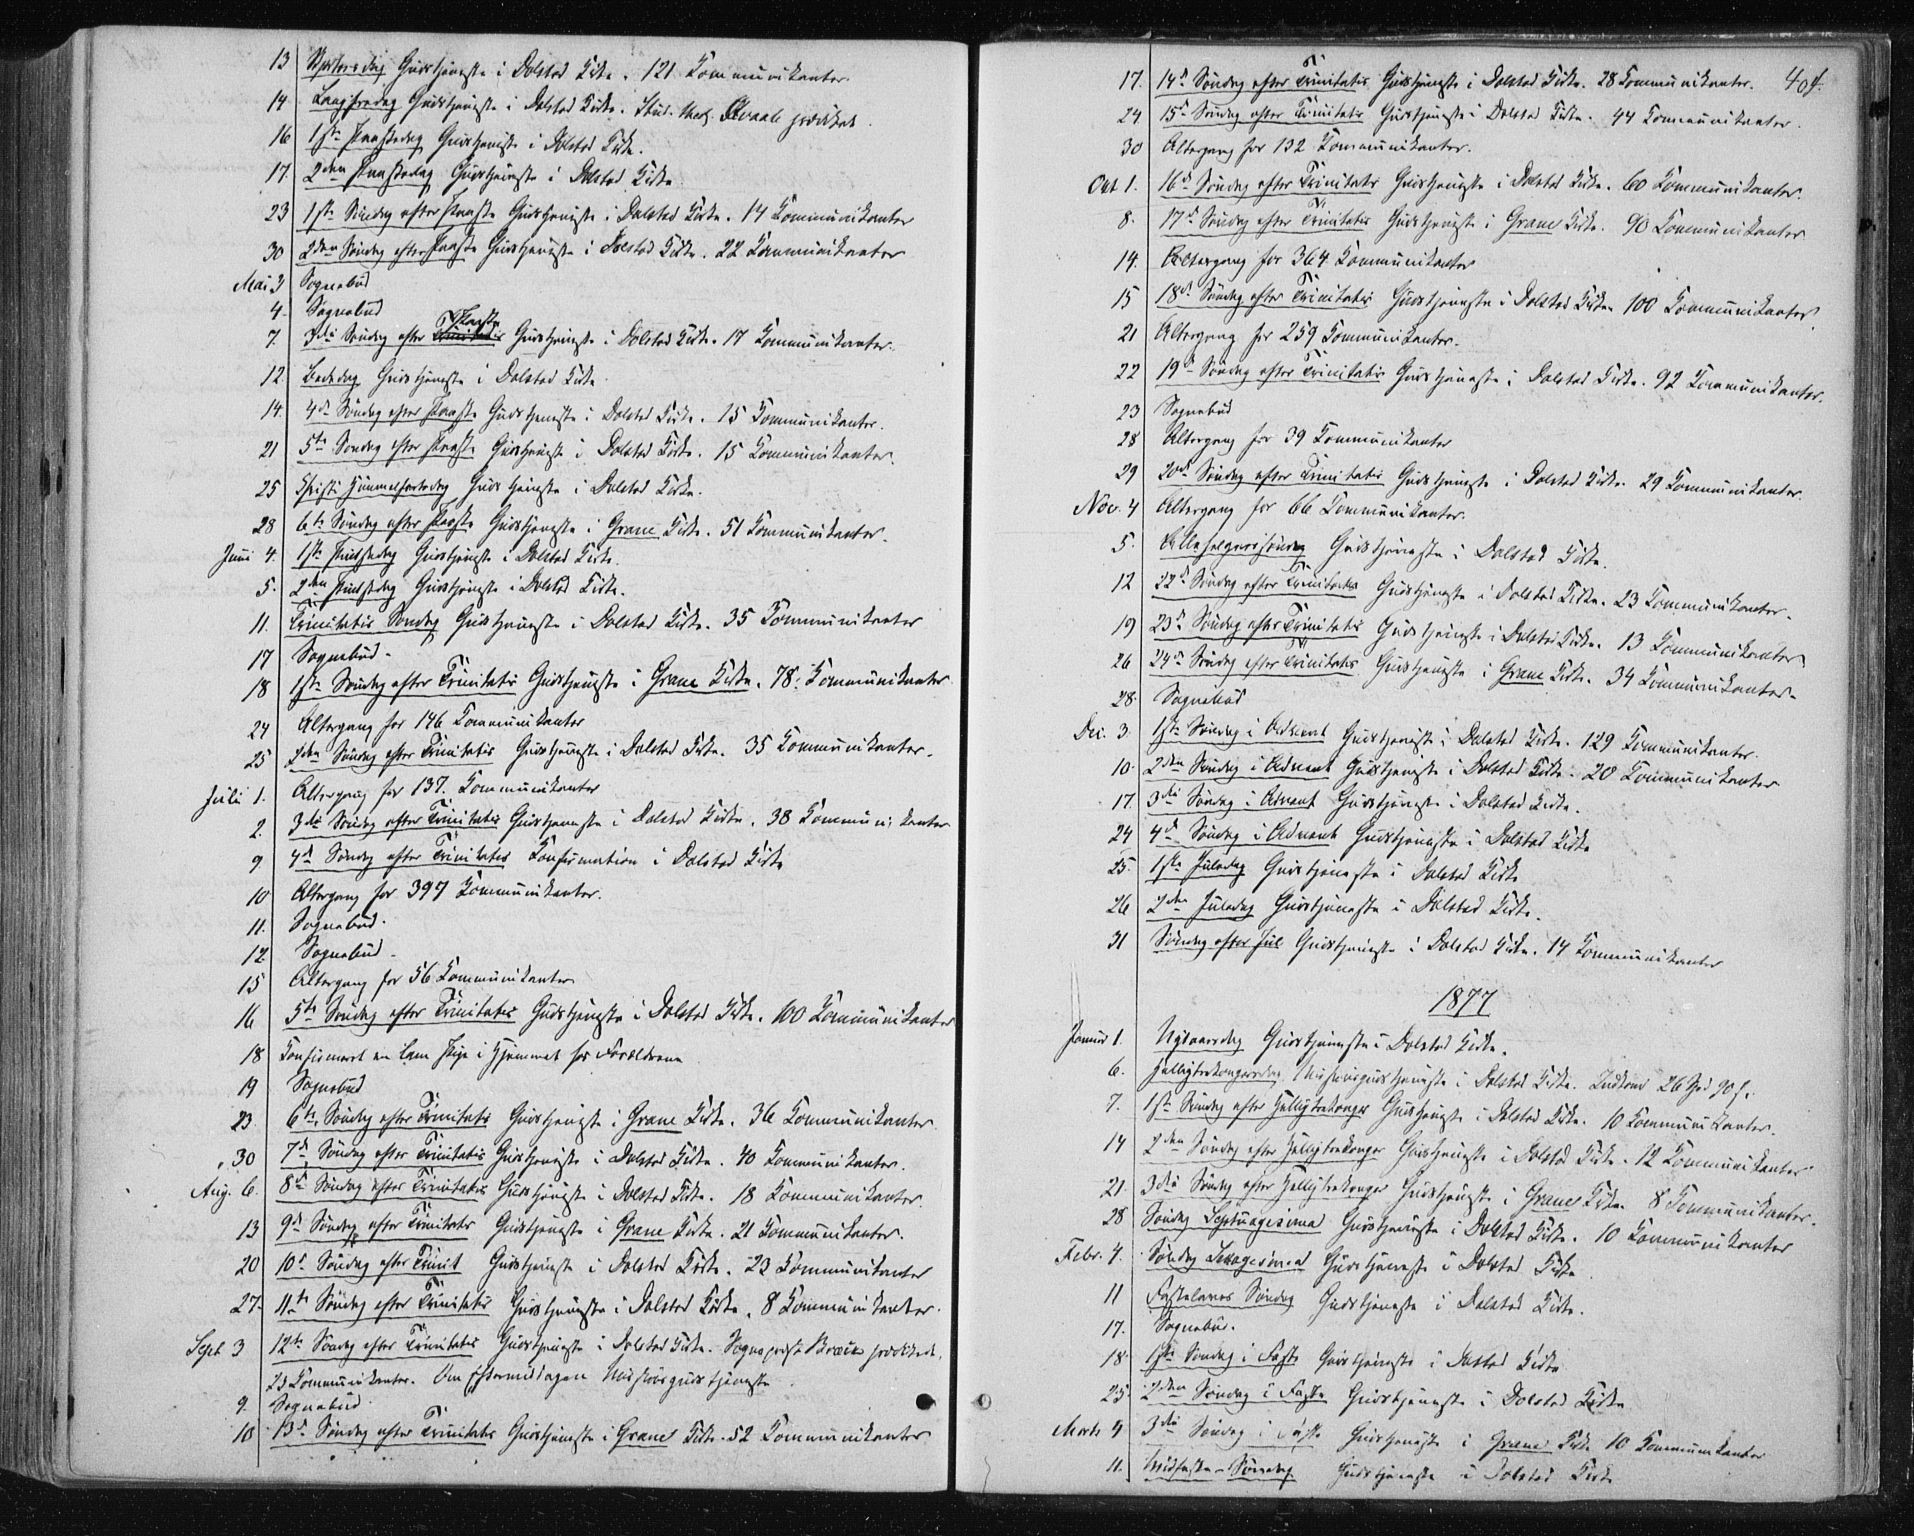 13 Skjertorsdag Gudstjeneste i Dolstad Kirke. 121 Kommunikanter.
14 Langfredag Gudstjeneste i Dolstad Kirke. Stud. theol. prædiket.
16 1ste Paaskedag Gudstjeneste i Dolstad Kirke.
17. 2den Paaskedag Gudstjeneste i Dolstad Kirke
23 1ste Søndag efter Paaske Gudstjeneste i Dolstad Kirke. 14 Kommunikanter
30 2den Søndag efter Paaske Gudstjeneste i Dolstad Kirke. 22 Kommunikanter
Mai 3 Sognebud
4. Sognebud
7. 3die Søndag efter Paaske Gudstjeneste i Dolstad Kirke. 17 Kommunikanter.
12. Bededag Gudstjeneste i Dolstad Kirke.
14. 4de Søndag efter Paaske Gudstjeneste i Dolstad Kirke. 15 Kommunikanter.
21 5te Søndag efter Paaske Gudstjeneste i Dolstad Kirke. 15 Kommunikanter.
25 Christi Himmelfartsdag Gudstjeneste i Dolstad Kirke.
28 6te Søndag efter Paaske Gudstjeneste i Grane Kirke. 51 Kommunikanter.
Juni 4. 1ste Pintsedag Gudstjeneste i Dolstad Kirke.
5. 2den Pintsedag Gudstjeneste i Dolstad Kirke.
11. Trinitatis Søndag Gudstjeneste i Dolstad Kirke. 35 Kommunikanter
17 Sognebud.
18 1ste Søndag efter Trinitatis Gudstjeneste i Grane Kirke. 78. Kommunikanter
24 Altergang for 146 Kommunikanter
25 2den Søndag efter Trinitatis Gudstjeneste i Dolstad Kirke. 35 Kommunikanter.
Juli 1. Altergang for 137. Kommunikanter
2. 3die Søndag efter Trinitatis Gudstjeneste i Dolstad Kirke. 38 Kommunikanter
9 4de Søndag efter Trinitatis Konfirmation i Dolstad Kirke
10 Altergang for 397 Kommunikanter.
11. Sognebud.
12. Sognebud.
15 Altergang for 56 Kommunikanter
16 5te Søndag efter Trinitatis Gudstjeneste i Dolstad Kirke. 100 Kommunikanter
18. Konfirmeret en lam Pige i Hjemmet hos Forældrene
19 Sognebud
23. 6te Søndag efter Trinitatis Gudstjeneste i Grane Kirke. 36 Kommunikanter.
30 7de Søndag efter Trinitatis Gudstjeneste i Dolstad Kirke. 40 Kommunikanter.
Aug. 6. 8de Søndag efter Trinitatis Gudstjeneste i Dolstad Kirke. 18 Kommunikanter.
13 9de Søndag efter Trinitatis Gudstjeneste i Grane Kirke. 21 Kommunikanter.
20 10de Søndag efter Trinit Gudstjeneste i Dolstad Kirke. 23 Kommunikanter
27. 11te Søndag efter Trinitatis Gudstjeneste i Dolstad Kirke. 8 Kommunikanter.
Sept. 3 12te Søndag efter Trinitatis Gudstjeneste i Dolstad Kirke. Sogneprest prædikede.
23 Kommunikanter. Om Eftermiddagen Missionsgudstjeneste
9. Sognebud.
10 13de Søndag efter Trinitatis Gudstjeneste i Grane Kirke. 52 Kommunikanter
404.
17. 14de Søndag efter Trinitatis Gudstjeneste i Dolstad Kirke. 28 Kommunikanter.
24 15de Søndag efter Trinitatis Gudstjeneste i Dolstad Kirke. 44 Kommunikanter.
30 Altergang for 132 Kommunikanter.
Okt 1. 16de Søndag efter Trinitatis Gudstjeneste i Dolstad Kirke. 60 Kommunikanter.
8. 17de Søndag efter Trinitatis Gudstjeneste i Grane Kirke. 90 Kommunikanter
14. Altergang for 364 Kommunikanter
15 18de Søndag efter Trinitatis Gudstjeneste i Dolstad Kirke 100 Kommunikanter.
21 Altergang for 259 Kommunikanter.
22 19de Søndag efter Trinitatis Gudstjeneste i Dolstad Kirke. 92 Kommunikanter.
23 Sognebud
28 Altergang for 39 Kommunikanter
29 20de Søndag efter Trinitatis Gudstjeneste i Dolstad Kirke. 29 Kommunikanter.
Nov. 4 Altergang for 66 Kommunikanter.
5. Allehelgenssøndag Gudstjeneste i Dolstad Kirke.
12 22de Søndag efter Trinitatis Gudstjeneste i Dolstad Kirke. 23 Kommunikanter.
19 23de Søndag efter Trinitatis Gudstjeneste i Dolstad Kirke. 13 Kommunikanter
26 24de Søndag efter Trinitatis Gudstjeneste i Grane Kirke. 34 Kommunikanter.
28. Sognebud
Dec. 3. 1ste Søndag i Advent Gudstjeneste i Dolstad Kirke. 129 Kommunikanter.
10. 2den Søndag i Advent Gudstjeneste i Dolstad Kirke. 20 Kommunikanter
17. 3die Søndag i Advent Gudstjeneste i Dolstad Kirke.
24 4de Søndag i Advent Gudstjeneste i Dolstad Kirke
25. 1ste Juledag Gudstjeneste i Dolstad Kirke
26 2den Juledag Gudstjeneste i Dolstad Kirke.
31 Søndag efter Jul Gudstjeneste i Dolstad Kirke. 14 Kommunikanter
1877
Januar 1. Nytaarsdag Gudstjeneste i Dolstad Kirke.
6. Helligtrekongersdag Missionsgudstjeneste i Dolstad Kirke. Indkom 26
7. 1ste Søndag efter Helligtrekonger Gudstjeneste i Dolstad Kirke. 10 Kommunikanter.
14 2den Søndag efter Helligtrekonger Gudstjeneste i Dolstad Kirke. 12 Kommunikanter
21. 3die Søndag efter Helligtrekonger Gudstjeneste i Grane Kirke. 8 Kommunikanter.
28 Søndag Septuagesima Gudstjeneste i Dolstad Kirke. 10 Kommunikanter
Febr. 4. Søndag Sexagesima Gudstjeneste i Dolstad Kirke
11 Fastelavns Søndag Gudstjeneste i Dolstad Kirke.
17. Sognebud.
18. 1ste Søndag i Faste Gudstjeneste i Dolstad Kirke
25. 2den Søndag i Faste Gudstjeneste i Dolstad Kirke
Marts 4 3die Søndag i Faste Gudstjeneste i Grane Kirke 10 Kommunikanter
11. Midfaste-Søndag Gudstjeneste i Dolstad Kirke